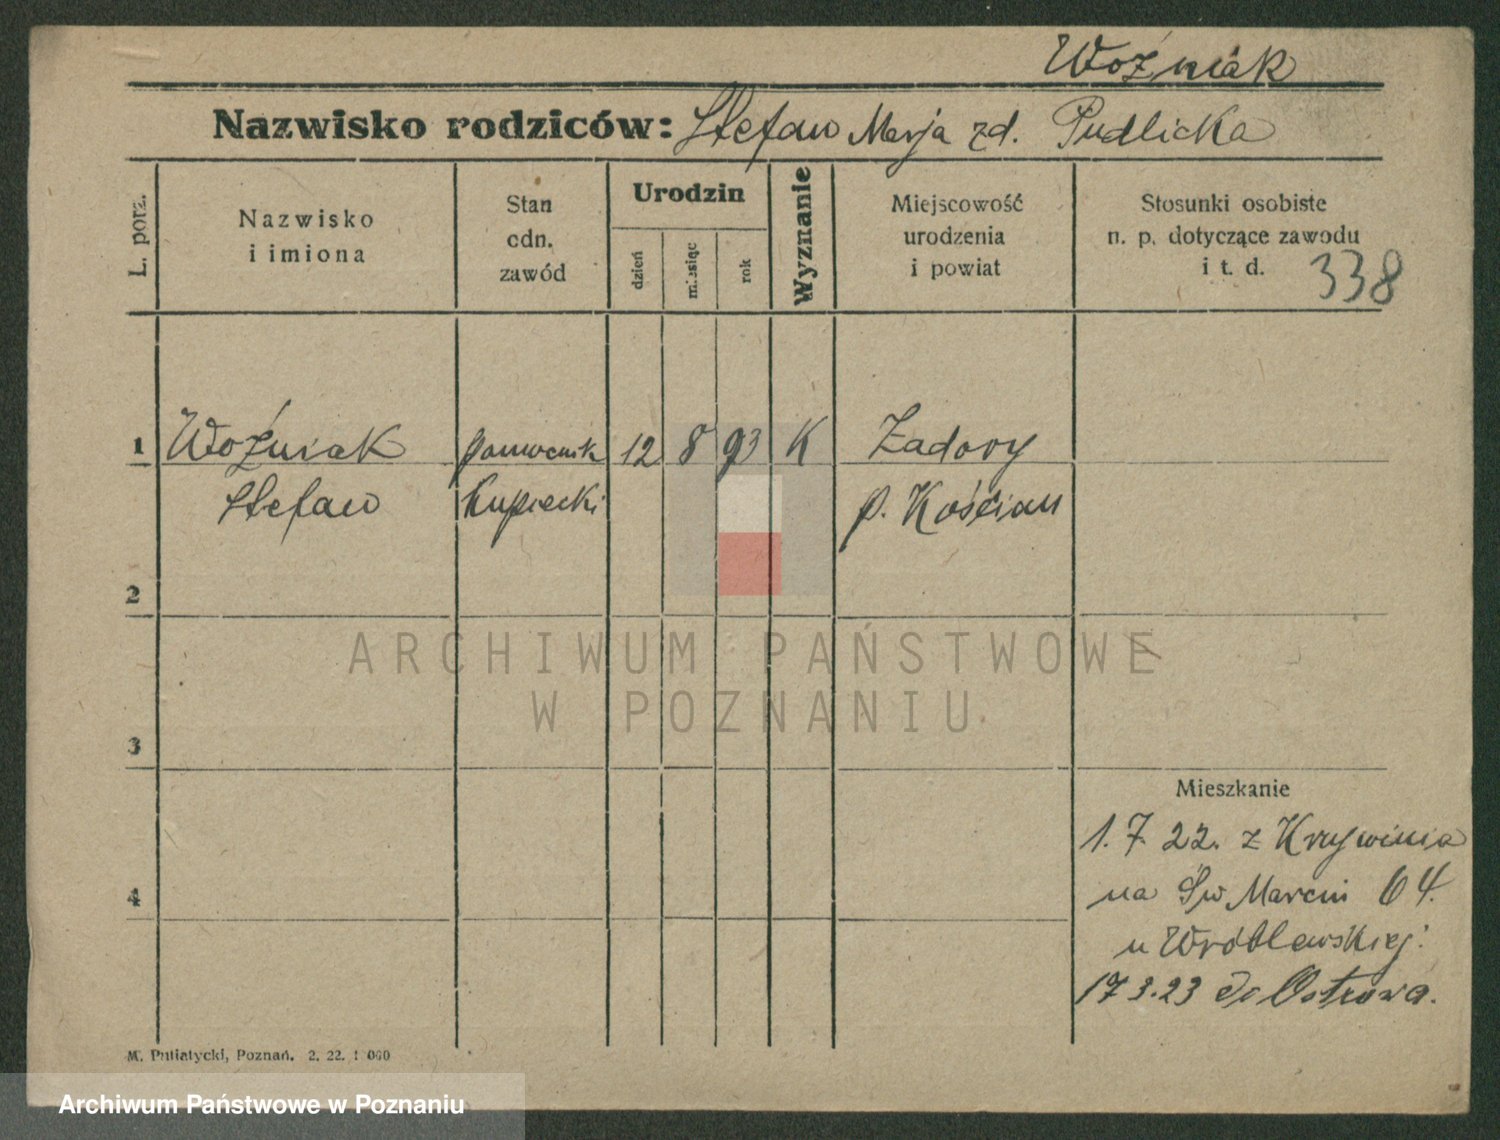 Woźniak
Nazwisko rodziców: Stefan Marja zd. Pudlicka
L. porz.
Nazwisko
i imiona
Stan
cdn.
zawód
Urodzin
dzień
miesiąc
rok
Wyznanie
Miejscowość
urodzenia
i powiat
Stosunki osobiste
n. p. dotyczące zawodu
i t. d.
338
1 Woźniak pomocnik 12 8 93 K Zadory
Stefan kupiecki p. Kościan
2
ARCHIWUM PAŃSTWOWE
W POZNANIU
3
Mieszkanie
1. 7. 22. z Krzywinia
4
na Św Marcin 64.
u Wróblewskiej.
17 3. 23 do Ostrowa.
M. Putiatycki, Poznań. 2. 22. 1 000
Archiwum Państwowe w Poznaniu